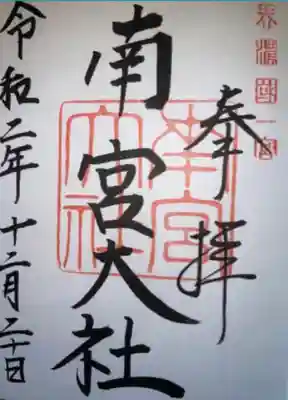 美濃國一宮
奉拝
南宮大社
南宮大社
令和二年十二月二十日